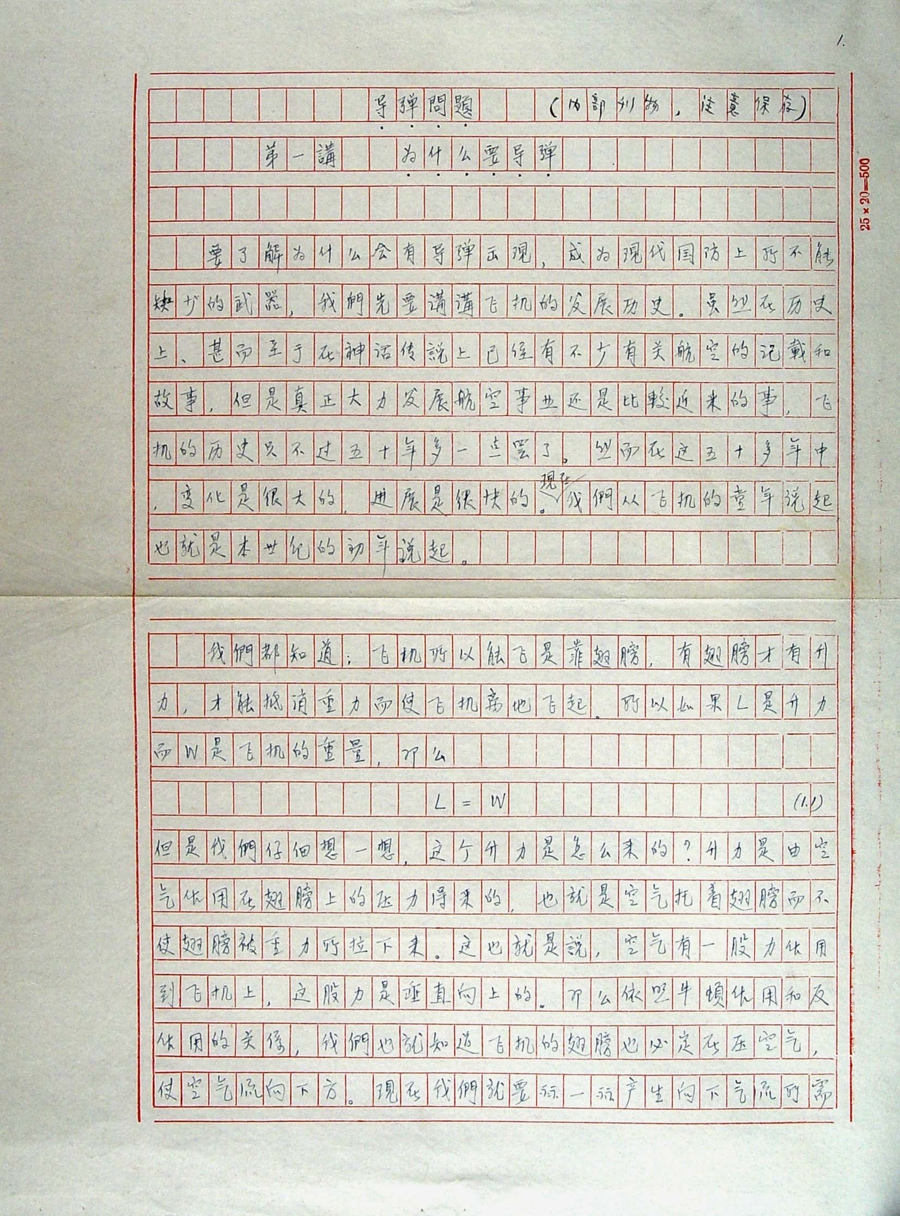 1.
导弹問題 (内部刊物,注意保存)
25×20=500
第一講 为什么要导弹
要了解为什么会有导弹出現,成为現代国防上所不能
缺少的武器,我們先要講講飞机的发展历史。虽然在历史
上、甚而至于在神话传說上已经有不少有关航空的记載和
故事,但是真正大力发展航空事业还是比較近来的事,飞
机的历史只不过五十年多一些罢了。然而在这五十多年中
,变化是很大的,进展是很快的。現在我們从飞机的童年说起
也就是本世纪的初年說起。
我們都知道:飞机所以能飞是靠翅膀,有翅膀才有升
力,才能抵消重力而使飞机离地飞起。所以如果L是升力
而W是飞机的重量,那么
L = W (1.1)
但是我們仔细想一想,这个升力是怎么来的?升力是由空
气作用在翅膀上的压力得来的,也就是空气托着翅膀而不
使翅膀被重力所拉下来。这也就是說,空气有一股力作用
到飞机上,这股力是垂直向上的。那么依照牛頓作用和反
作用的关係,我們也就知道飞机的翅膀也必定在压空气,
使空气流向下方。現在我們就要标一标产生向下气流所需